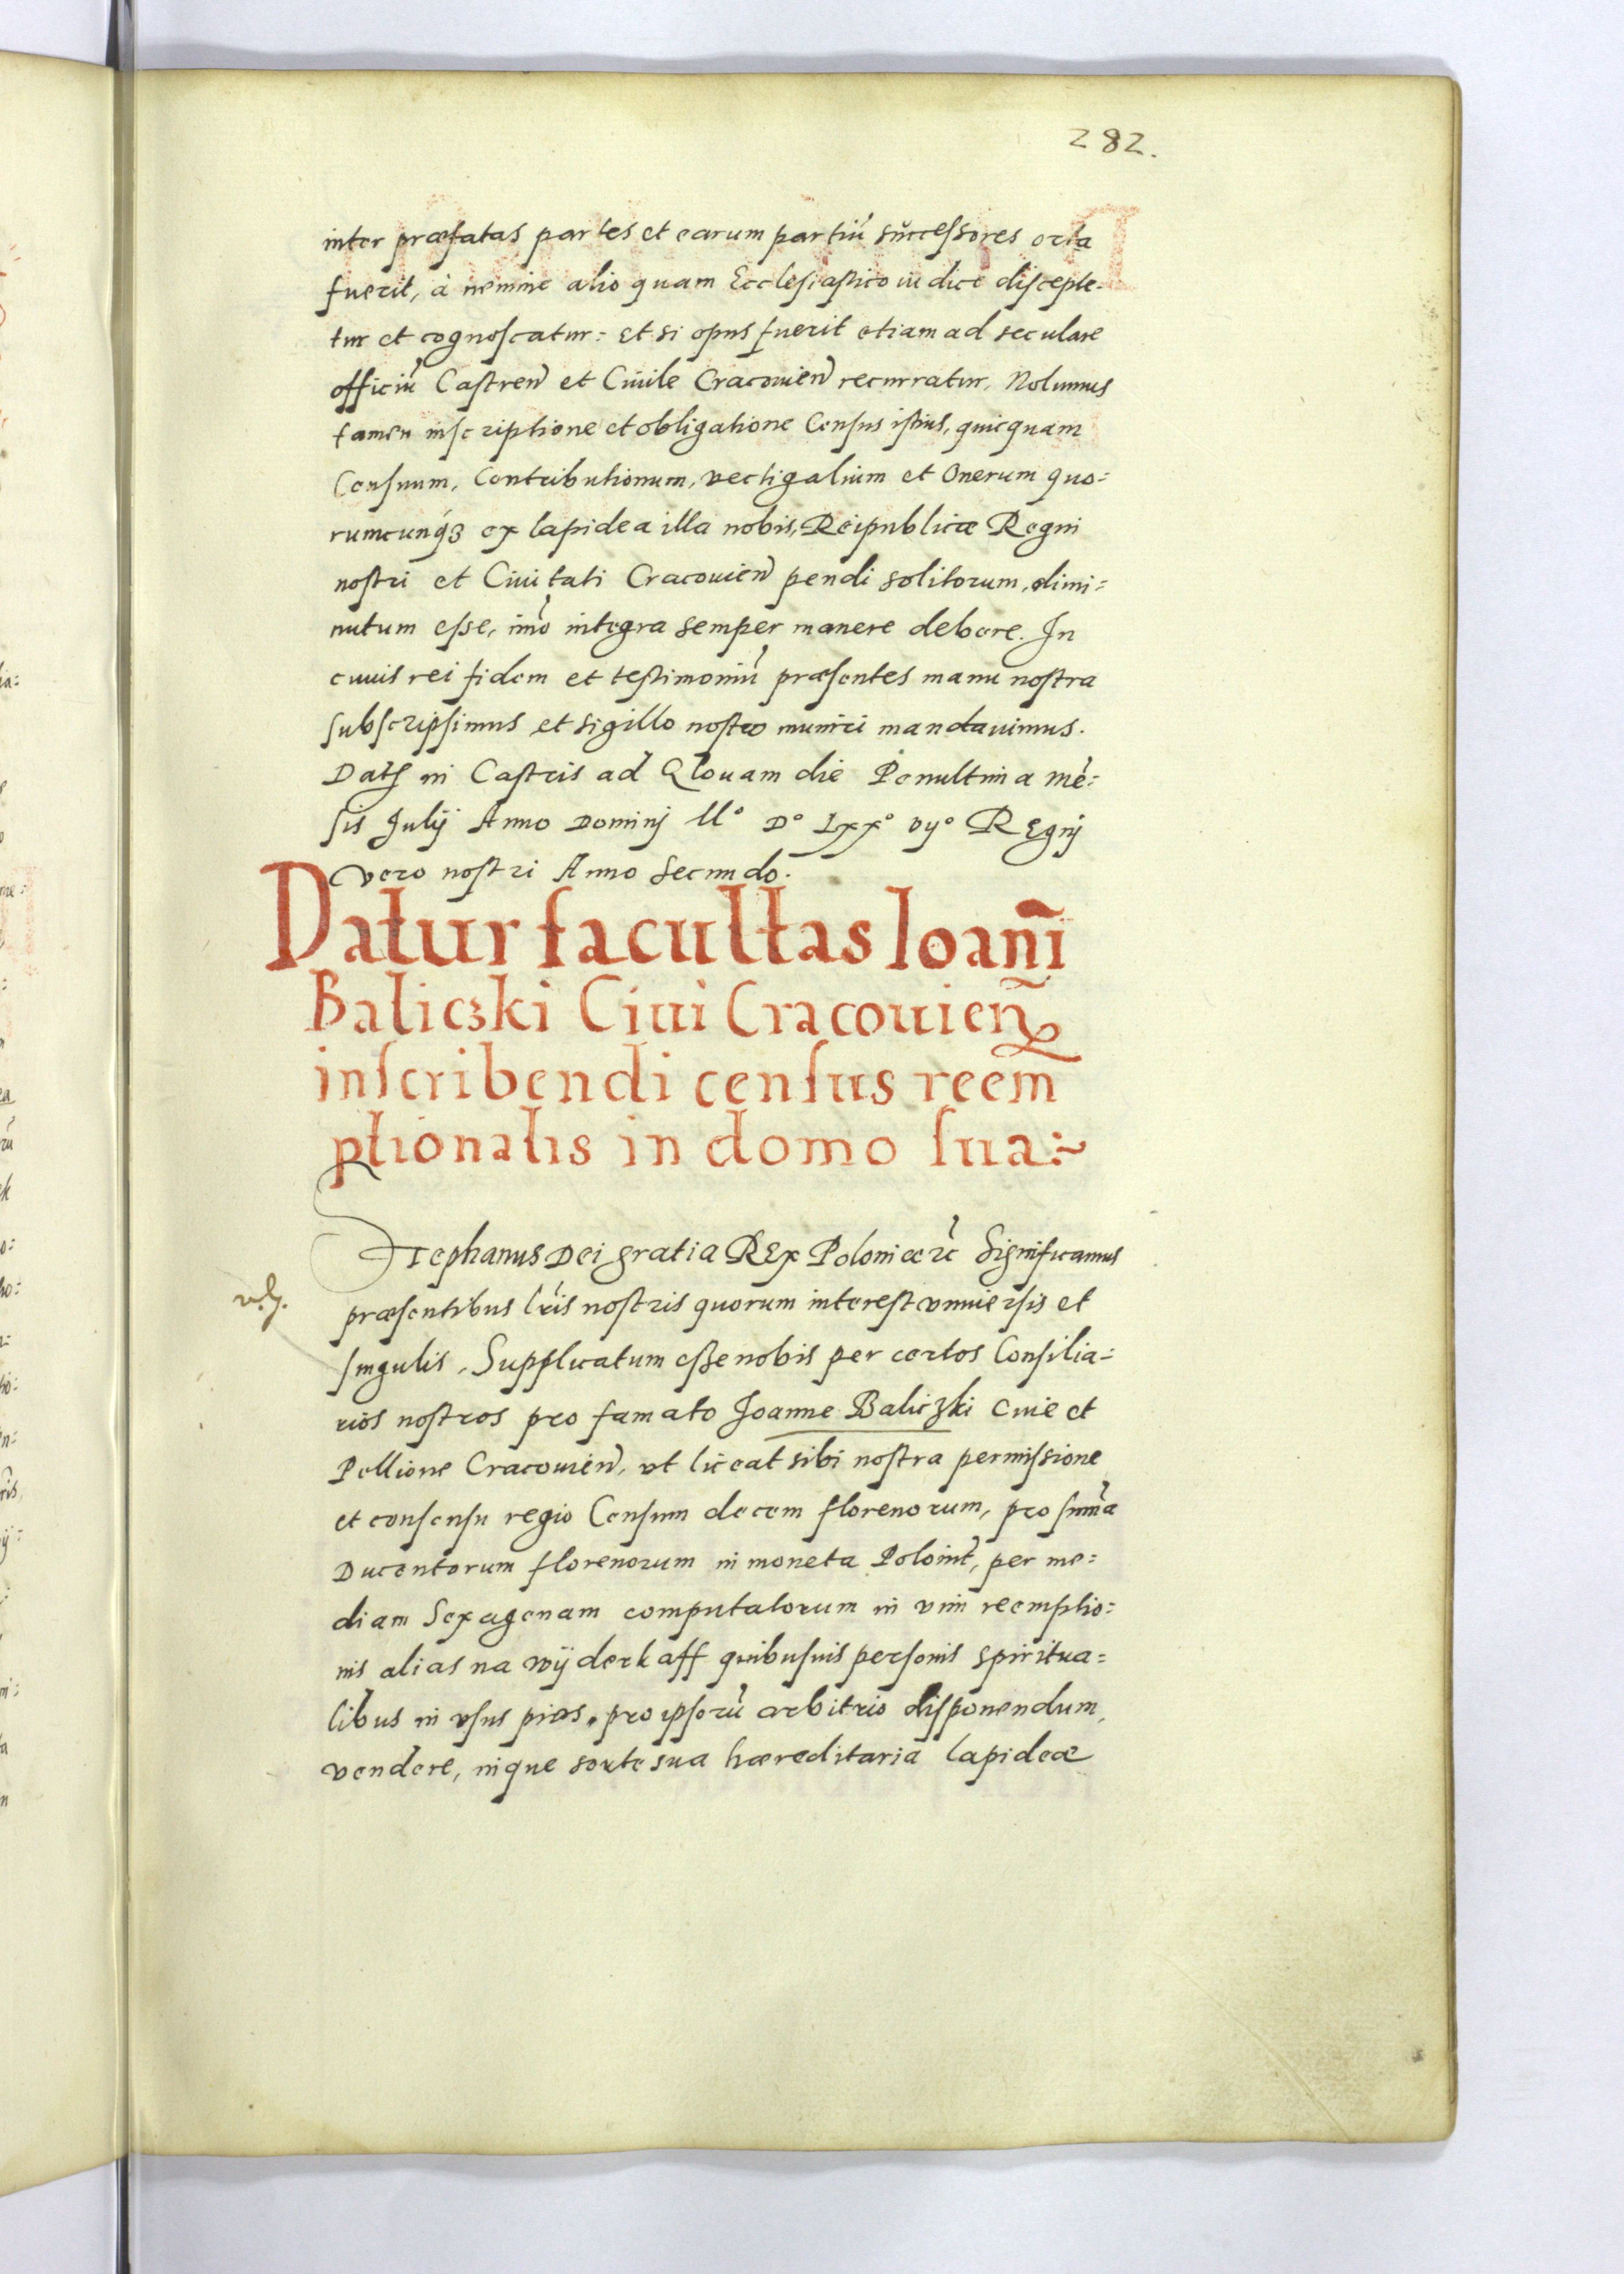 282.
inter præfatas partes et earum partiũ successores orta
fuerit, à nemine alio quam Ecclesiastico iudice discepte-
tur et cognoscatur: et si opus fuerit etiam ad seculare
officiũ Castren̄ et Ciuile Cracouien̄ recurratur, Nolumus
tamen inscriptione et obligatione Census istius, quicquam
Censuum, Contributionum, vectigalium et Onerum quo:
rumcunq́ꝫ ex lapidea illa nobis, Reipublicæ Regni
nostri et Ciuitati Cracouien̄ pendi solitorum, dimi:
nutum esse, imo integra semper manere debere. In
cuius rei fidem et testimoniũ præsentes manu nostra
subscripsimus et sigillo nostro muniri mandauimus.
in Castris ad die Penultima mẽ:
sis Julij Anno Dominj M° D° Lxx° vij° Regnj
vero nostri Anno Secundo.
Datur facultas Ioañi
Baliczki Ciui Cracouien̄
inscribendi census reem̄
ptionalis in domo sua:~
Stephanus Dei gratia Rex Poloniæ rc̃ Significamus
præsentibus lr̃is nostris quorum interest vniuersis et
singulis, Supplicatum eße nobis per certos Consilia:
rios nostros pro famato Joanne Baliczki Ciue et
Pellione Cracouien̄, vt liceat sibi nostra permissione
et consensu regio Censum decem florenorum, pro sum̃a
Ducentorum florenorum in moneta Poloniĉ, per me:
diam Sexagenam computatorum in vim reemptio:
nis alias na wijderkaff quibusuis personis spiritua:
libus in vsus pios, pro ipsorũ arbitrio disponendum,
vendere, inque sorte sua hæreditaria lapideæ